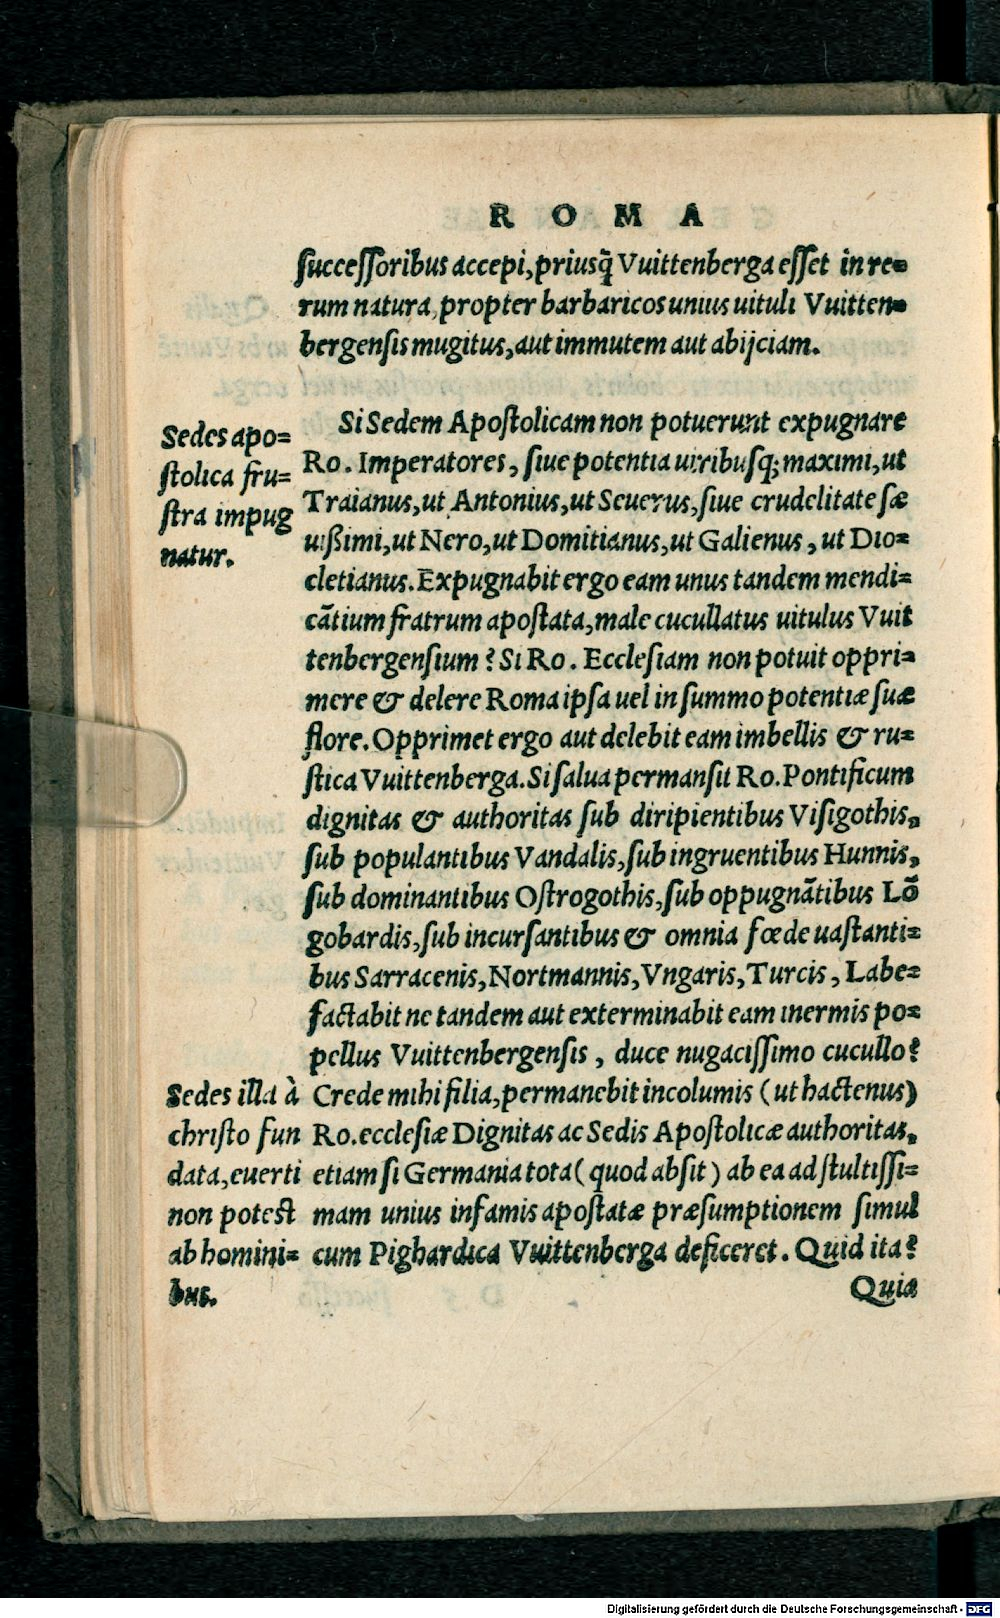 R O M A
successoribus accepi, priusq̃ Vuittenberga esset in re=
rum natura, propter barbaricos unius uituli Vuitten=
bergensis mugitus, aut immutem aut abijciam.
Sedes apo=
stolica fru=
stra impug
natur.
Si Sedem Apostolicam non potuerunt expugnare
Ro. Imperatores, siue potentia uiribusq; maximi, ut
Traianus, ut Antonius, ut Seuerus, siue crudelitate sæ
uißimi, ut Nero, ut Domitianus, ut Galienus, ut Dio=
cletianus. Expugnabit ergo eam unus tandem mendi=
cãtium fratrum apostata, male cucullatus uitulus Vuit
tenbergensium? Si Ro. Ecclesiam non potuit oppri=
mere & delere Roma ipsa uel in summo potentiæ suæ
flore. Opprimet ergo aut delebit eam imbellis & ru=
stica Vuittenberga. Si salua permansit Ro. Pontificum
dignitas & authoritas sub diripientibus Visigothis,
sub populantibus Vandalis, sub ingruentibus Hunnis,
sub dominantibus Ostrogothis, sub oppugnãtibus Lõ
gobardis, sub incursantibus & omnia fœde uastanti=
bus Sarracenis, Nortmannis, Vngaris, Turcis, Labe=
factabit ne tandem aut exterminabit eam inermis po=
pellus Vuittenbergensis, duce nugacissimo cucullo?
Crede mihi filia, permanebit incolumis (ut hactenus)
Ro. ecclesiæ Dignitas ac Sedis Apostolicæ authoritas,
etiam si Germania tota (quod absit) ab ea ad stultissi=
mam unius infamis apostatæ præsumptionem simul
cum Pighardica Vuittenberga deficeret. Quid ita?
Sedes illa à
christo fun
data, euerti
non potest
ab homini=
bus.
Quia
Digitalisierung gefördert durch die Deutsche Forschungsgemeinschaft - DFG